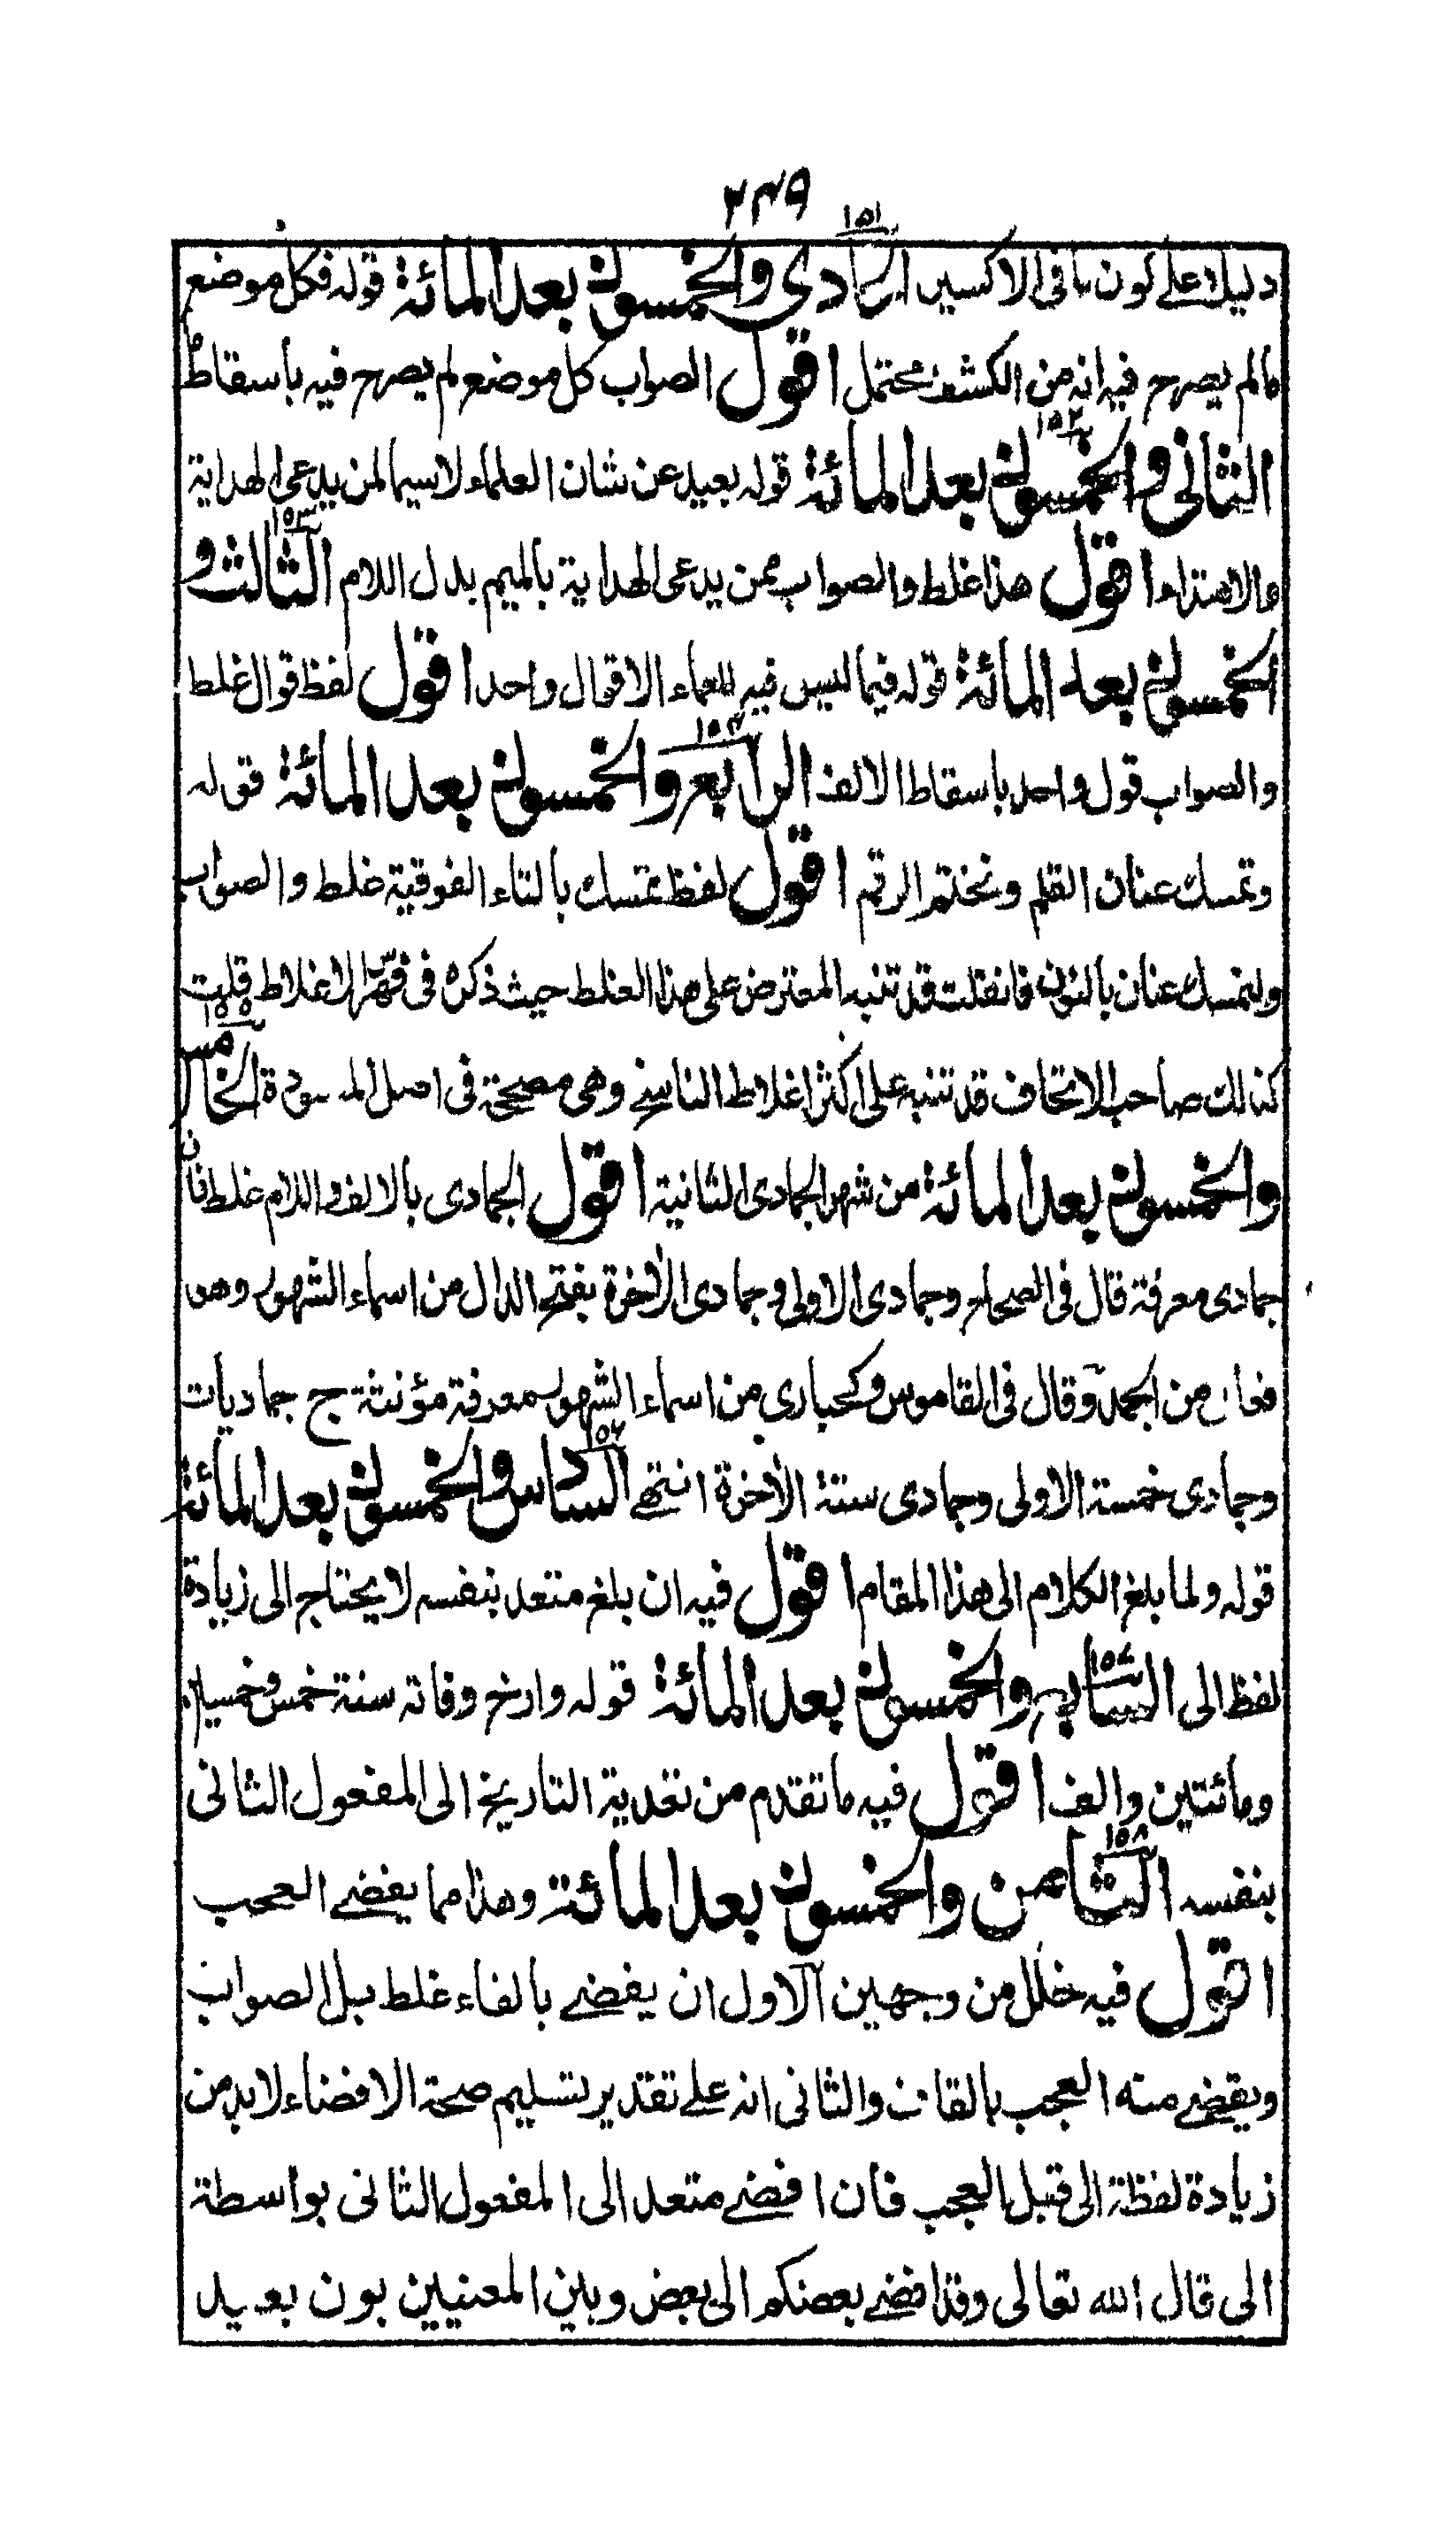 ٢٤٩
١٥١
دليلا على كون ما فى الاكسير الحادى والخمسون بعد المائة قوله فكل موضع
مالم يصرح فيه انه من الكشف محتمل اقول الصواب كل موضع لم يصرح فيه باسقاط
١٥٢
الثانى والخمسون بعد المائة قوله بعيد عن شان العلماء لاسيما لمن يدعى الهداية
١٥٣
والاهتداء اقول هذا غلط والصواب ممن يدعى الهداية بالميم بدل اللام الثالث و
الخمسون بعد المائة قوله فيما ليس فيه للعماء الا قوال واحد اقول لفظ قوال غلط
١٥٤
والصواب قول واحد باسقاط الالف الرابع والخمسون بعد المائة قوله
وتمسك عنان القلم ونختتم الرقم اقول لفظ تمسك بالتاء الفوقية غلط والصواب
ولنمسك عنان بالنون فانقلت قد تنبه المعترض على هذا الغلط حيث ذكره فى فهرس الاغلاط قلت
١٥٥
كذالك صاحب الاتحاف قد تنبه على اكثر اغلاط الناسخ وهى مصححة فى اصل المسودة الخامس
والخمسون بعد المائة من شهر الجمادى الثانية اقول الجمادى بالالف واللام غلط فان
جمادى معرفة قال فى الصحاح وجمادى الاولى وجمادى الآخرة بفتح الدال من اسماء الشهور وهو
فعالى من الجمد وقال فى القاموس وكحبارى من اسماء الشهور معرفة مؤنثة ج جماديات
١٥٦
وجمادى خمسة الاولى وجمادى ستة الآخرة انتهى السادس والخمسون بعد المائة
قوله ولما بلغ الكلام الى هذا المقام اقول فيه ان بلغ متعد بنفسه لا يحتاج الى زيادة
١٥٧
لفظ الى السابع والخمسون بعد المائة قوله وارخ وفاته سنة خمس وخمسين
ومائتين والف اقول فيه ما تقدم من تعدية التاريخ الى المفعول الثانى
١٥٨
بنفسه الثامن والخمسون بعد المائة وهذا مما يفضے العجب
اقول فيه خلل من وجهين الاول ان يفضے بالفاء غلط بل الصواب
ويقضے منه العجب بالقاف والثانى انه على تقدير تسليم صحة الافضاء لابد من
زيادة لفظة الى قبل العجب فان افضے متعد الى المفعول الثانى بواسطة
الى قال الله تعالى وقد افضے بعضكم الى بعض وبين المعنيين بون بعيد